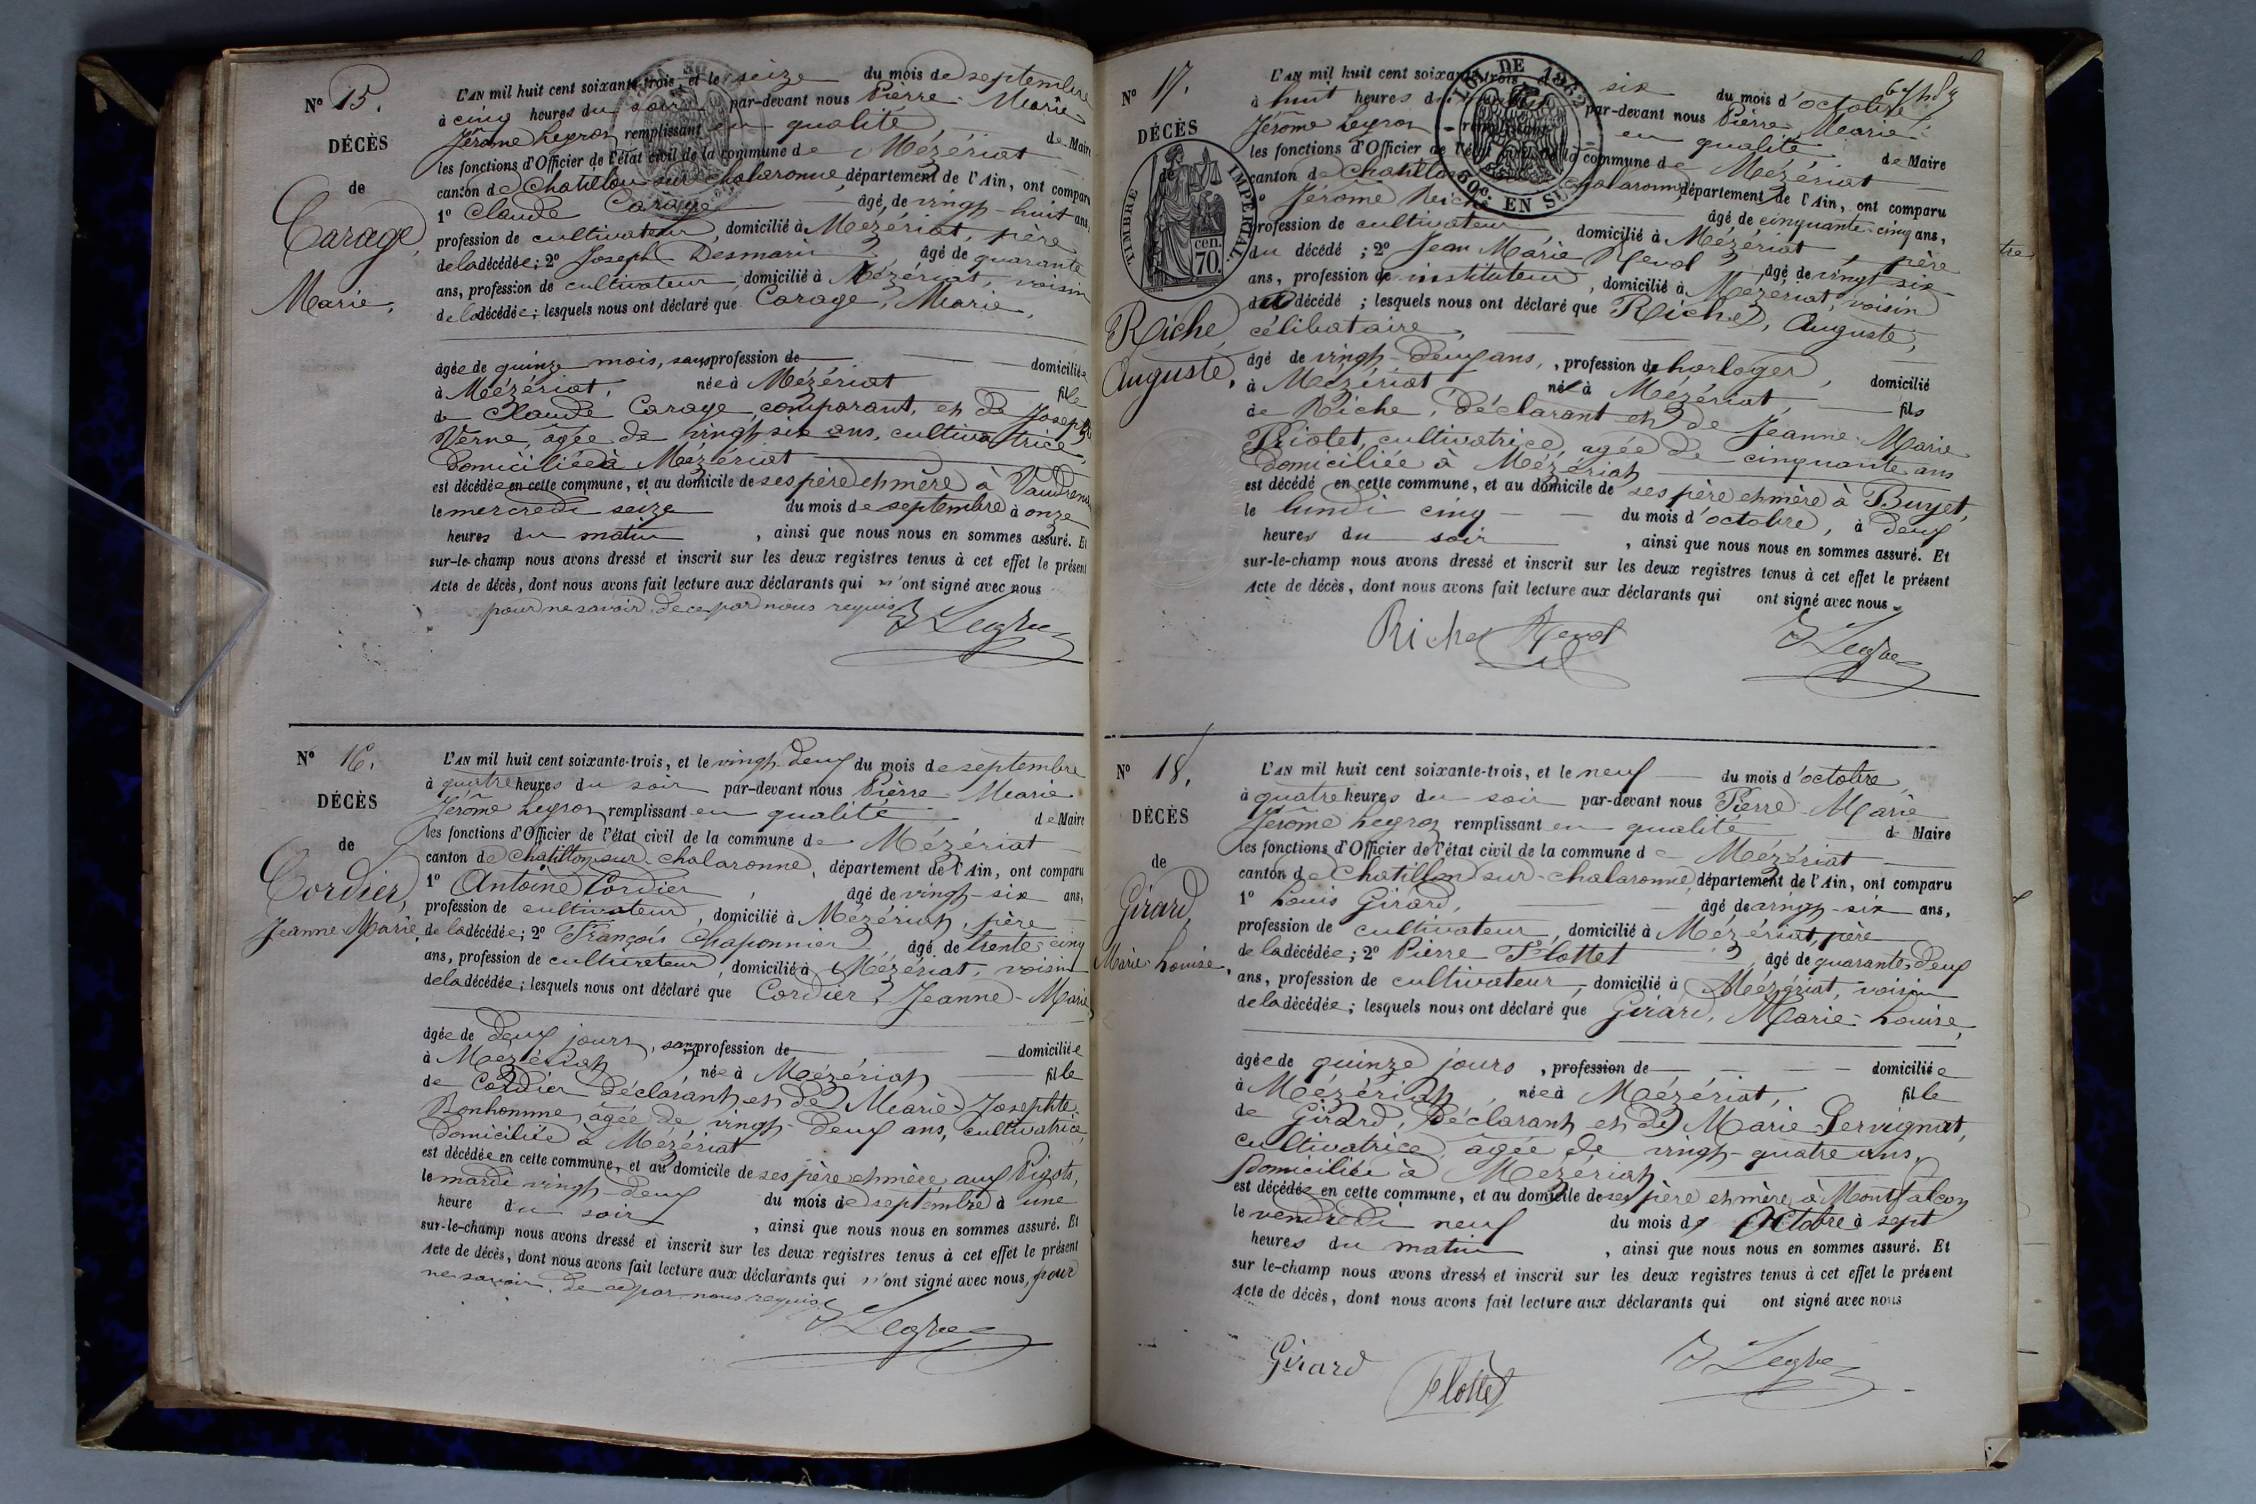 N° 15.
DÉCÈS
de
Carage,
Marie,
L'AN mil huit cent soixante-trois, et le seize du mois de septembre
à cinq heures du soir par-devant nous Pierre Marie
Jérôme Legros remplissant en qualité de Maire
les fonctions d'Officier de l'état civil de la commune de Mézériat
canton de Chatillon sur chalaronne, département de l'Ain, ont comparu
1° Claude Carage âgé de vingt-huit ans,
profession de cultivateur, domicilié à Mézériat, père
de la décédée; 2° Joseph Desmaris âgé de quarante
ans, profession de cultivateur, domicilié à Mézériat, voisin
de la décédée; lesquels nous ont déclaré que Carage, Marie,
âgée de quinze mois, sans profession de domiciliée
à Mézériat, née à Mézériat fille
de Claude Carage, comparant, et de Josephte
Verne, âgée de vingt six ans, cultivatrice,
domiciliée à Mézériat
est décédée en cette commune, et au domicile de ses père et mère à
le mercredi seize du mois de septembre à onze
heures du matin, ainsi que nous nous en sommes assuré. Et
sur-le-champ nous avons dressé et inscrit sur les deux registres tenus à cet effet le présent
Acte de décès, dont nous avons fait lecture aux déclarants qui n'ont signé avec nous
pour ne savoir de ce par nous requis
N° 16.
DÉCÈS
de
Cordier,
Jeanne Marie,
L'AN mil huit cent soixante-trois, et le vingt-deux du mois de septembre
à quatre heures du soir par-devant nous Pierre Marie
Jérôme Legros remplissant en qualité de Maire
les fonctions d'Officier de l'état civil de la commune de Mézériat
canton de Chatillon-sur-chalaronne, département de l'Ain, ont comparu
1° Antoine Cordier, âgé de vingt-six ans,
profession de cultivateur, domicilié à Mézériat, père
de la décédée; 2° François Chaponnier âgé de trente-cinq
ans, profession de cultureteur, domicilié à Mézériat, voisin
de la décédée; lesquels nous ont déclaré que Cordier, Jeanne-Marie
âgée de deux jours, sans profession de domiciliée
à Mézériat née à Mézériat fille
de Cordier déclarant et de Marie Josephte
Bonhomme, âgée de vingt-deux ans, cultivatrice,
domiciliée à Mézériat
est décédée en cette commune, et au domicile de ses père et mère aux Pigots,
le mardi vingt-deux du mois de septembre à une
heure du soir, ainsi que nous nous en sommes assuré. Et
sur-le-champ nous avons dressé et inscrit sur les deux registres tenus à cet effet le présent
Acte de décès, dont nous avons fait lecture aux déclarants qui n'ont signé avec nous, pour
ne savoir, de ce par nous requis
N° 17.
DÉCÈS
de
TIMBRE IMPERIAL.
70 cen.
Riche,
Auguste,
LOI DE 1862
50c EN SUS
L'AN mil huit cent soixante-trois six du mois d'octobre
à huit heures du par-devant nous Pierre Marie
Jérôme Legros remplissant en qualité de Maire
les fonctions d'Officier de l'état civil de la commune de Mézériat
canton de Chatillon chalaronne, département de l'Ain, ont comparu
Jérôme Riche âgé de cinquante-cinq ans,
profession de cultivateur, domicilié à Mézériat père
du décédé; 2° Jean Marie Revol âgé de vingt-six
ans, profession de instituteur, domicilié à Mézériat, voisin
du décédé; lesquels nous ont déclaré que Riche, Auguste,
célibataire,
âgé de vingt-deux ans, profession de horloger, domicilié
à Mézériat né à Mézériat, fils
de Riche, déclarant et de Jeanne Marie
Priolet, cultivatrice, agée de cinquante ans
domiciliée à Mézériat
est décédé en cette commune, et au domicile de ses père et mère à Buyet,
le lundi cinq du mois d'octobre, à deux
heures du soir, ainsi que nous nous en sommes assuré. Et
sur-le-champ nous avons dressé et inscrit sur les deux registres tenus à cet effet le présent
Acte de décès, dont nous avons fait lecture aux déclarants qui ont signé avec nous
Riche Revol
N° 18.
DÉCÈS
de
Girard,
Marie-Louise,
L'AN mil huit cent soixante-trois, et le neuf du mois d'octobre,
à quatre heures du soir par-devant nous Pierre-Marie
Jérôme Legros remplissant en qualité de Maire
les fonctions d'Officier de l'état civil de la commune de Mézériat
canton de Chatillon sur-chalaronne, département de l'Ain, ont comparu
1° Louis Girard, âgé de vingt-six ans,
profession de cultivateur, domicilié à Mézériat, père
de la décédée; 2° Pierre Flottet âgé de quarante-deux
ans, profession de cultivateur, domicilié à Mézériat, voisin
de la décédée; lesquels nous ont déclaré que Girard, Marie-Louise,
âgée de quinze jours, profession de domiciliée
à Mézériat, née à Mézériat, fille
de Girard, déclarant et de Marie Servignat,
cultivatrice, âgée de vingt-quatre ans,
domiciliée à Mézériat
est décédée en cette commune, et au domicile de ses père et mère, à Montfalcon
le vendredi neuf du mois d' Octobre à sept
heures du matin, ainsi que nous nous en sommes assuré. Et
sur le-champ nous avons dressé et inscrit sur les deux registres tenus à cet effet le présent
Acte de décès, dont nous avons fait lecture aux déclarants qui ont signé avec nous
Girard
Flottet